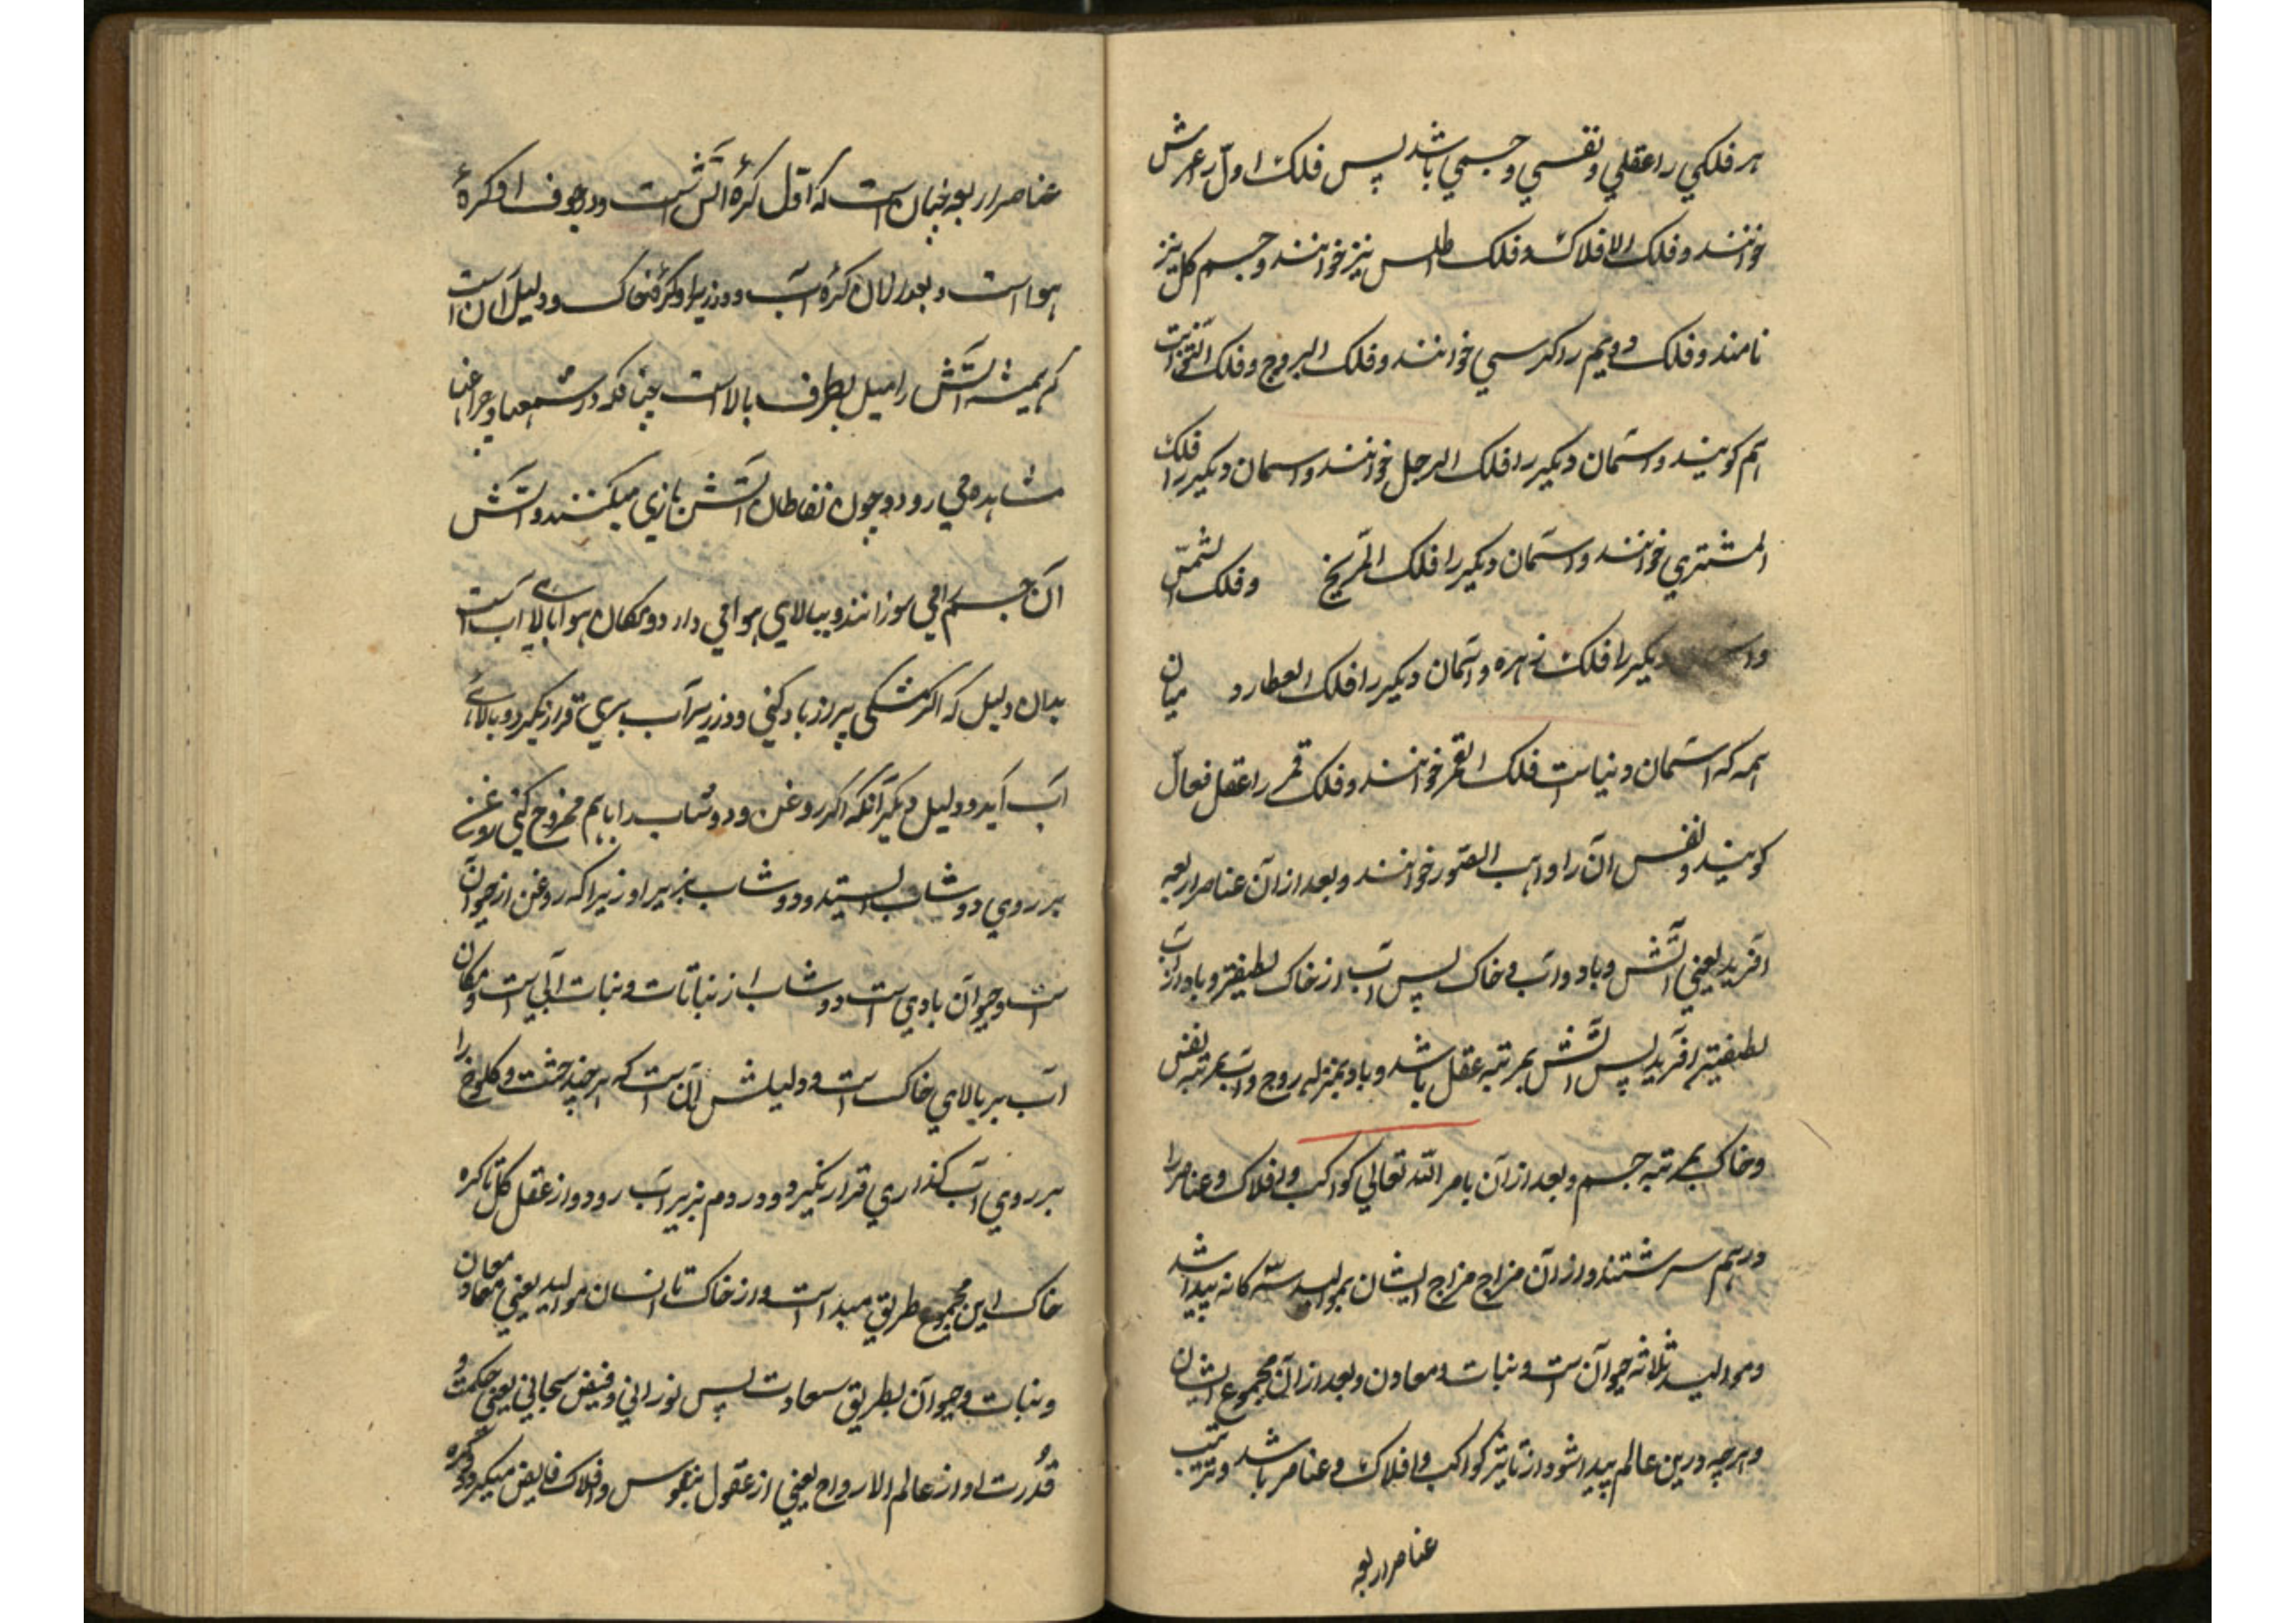 هر فلكي را عقلي و نفسي و جسمي باشد پس فلك اول را عرش
خوانند و فلك الافلاك و فلك اطلس نيز خوانند و جسم كل نيز
نامند و فلك دويم را كرسي خوانند و فلك البروج و فلك الثوابت
هم كويند و آسمان ديكير را فلك الرحل خوانند و آسمان ديكير را فلك
المشتري خوانند و آسمان ديكير را فلك المريخ و فلك الشمس
ديكير را فلك زهره و آسمان ديكير را فلك العطارد ميان
همه كه آسمان دنياست فلك القمر خوانند و فلك قمر را عقل فعال
كويند و نفس آن را واهب الصور خوانند و بعد از آن عناصر اربعه
آفريد يعني آتش و باد و آب و خاك پس آب از خاك لطيفتر و باد از آب
لطيفتر آفريد پس آتش بمرتبه عقل باشد و باد بمنزله روح و آب بمرتبه نفس
و خاك بمرتبه جسم و بعد از آن بامر الله تعالي كواكب و افلاك و عناصر را
درهم سرشتند و از آن مزاج مزاج ايشان بمواليد سه كانه پيدا شد
و مواليد ثلاثه حيوان است و نبات و معادن و بعد از آن مجموع ايشان
و هرچه درين عالم پيدا شود از تاثير كواكب و افلاك و عناصر باشد و ترتيب
عناصر اربعه
عناصر اربعه چنان است كه اول كرهٔ آتش است و در جوف او كرهٔ
هوا است و بعد از آن كرهٔ آب و در زير او كرهٔ خاك و دليل آن است
كه هميشه آتش را ميل بطرف بالا است چنانكه در شمعها و چراغها
مشاهده مي رود و چون نفاطان آتش بازي ميكنند و آتش
آن جسم را مي سوزانند و ببالاي هوا مي دارد و مكان هوا بالاي آب است
بدان دليل كه اكر مشكي پر از باد كني و در زير آب بري قرار نكيرد و بالاي
آب آيد و دليل ديكر آنكه اكر روغن و دوشاب را با هم ممزوج كني روغن
بر روي دوشاب ايستد و دوشاب بزير او زيرا كه روغن از حيوان
است و حيوان بادي است و دوشاب از نباتات و نبات آبي است و مكان
آب بر بالاي خاك است و دليلش آن است كه هر چند خشت و كلوخ را
بر روي آب كذاري قرار نكيرد و در دم بزير آب رود و از عقل كل تا كره
خاك اين مجموع طريق مبدا است و از خاك تا انسان مواليد يعني معادن
و نبات و حيوان بطريق سعادت پس نوراني و فيض سبحاني يعني حكمت و
قدرت او از عالم الارواح يعني از عقول بنفوس و افلاك فايض ميكردد و كره